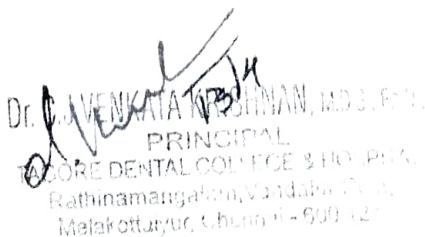 Dr. C.J. VENKATA KRISHNAN, M.D.S., Ph.D.,
PRINCIPAL
TAGORE DENTAL COLLEGE & HOSPITAL
Rathinamangalam, Vandalur
Melakottaiyur, Chennai - 600 127